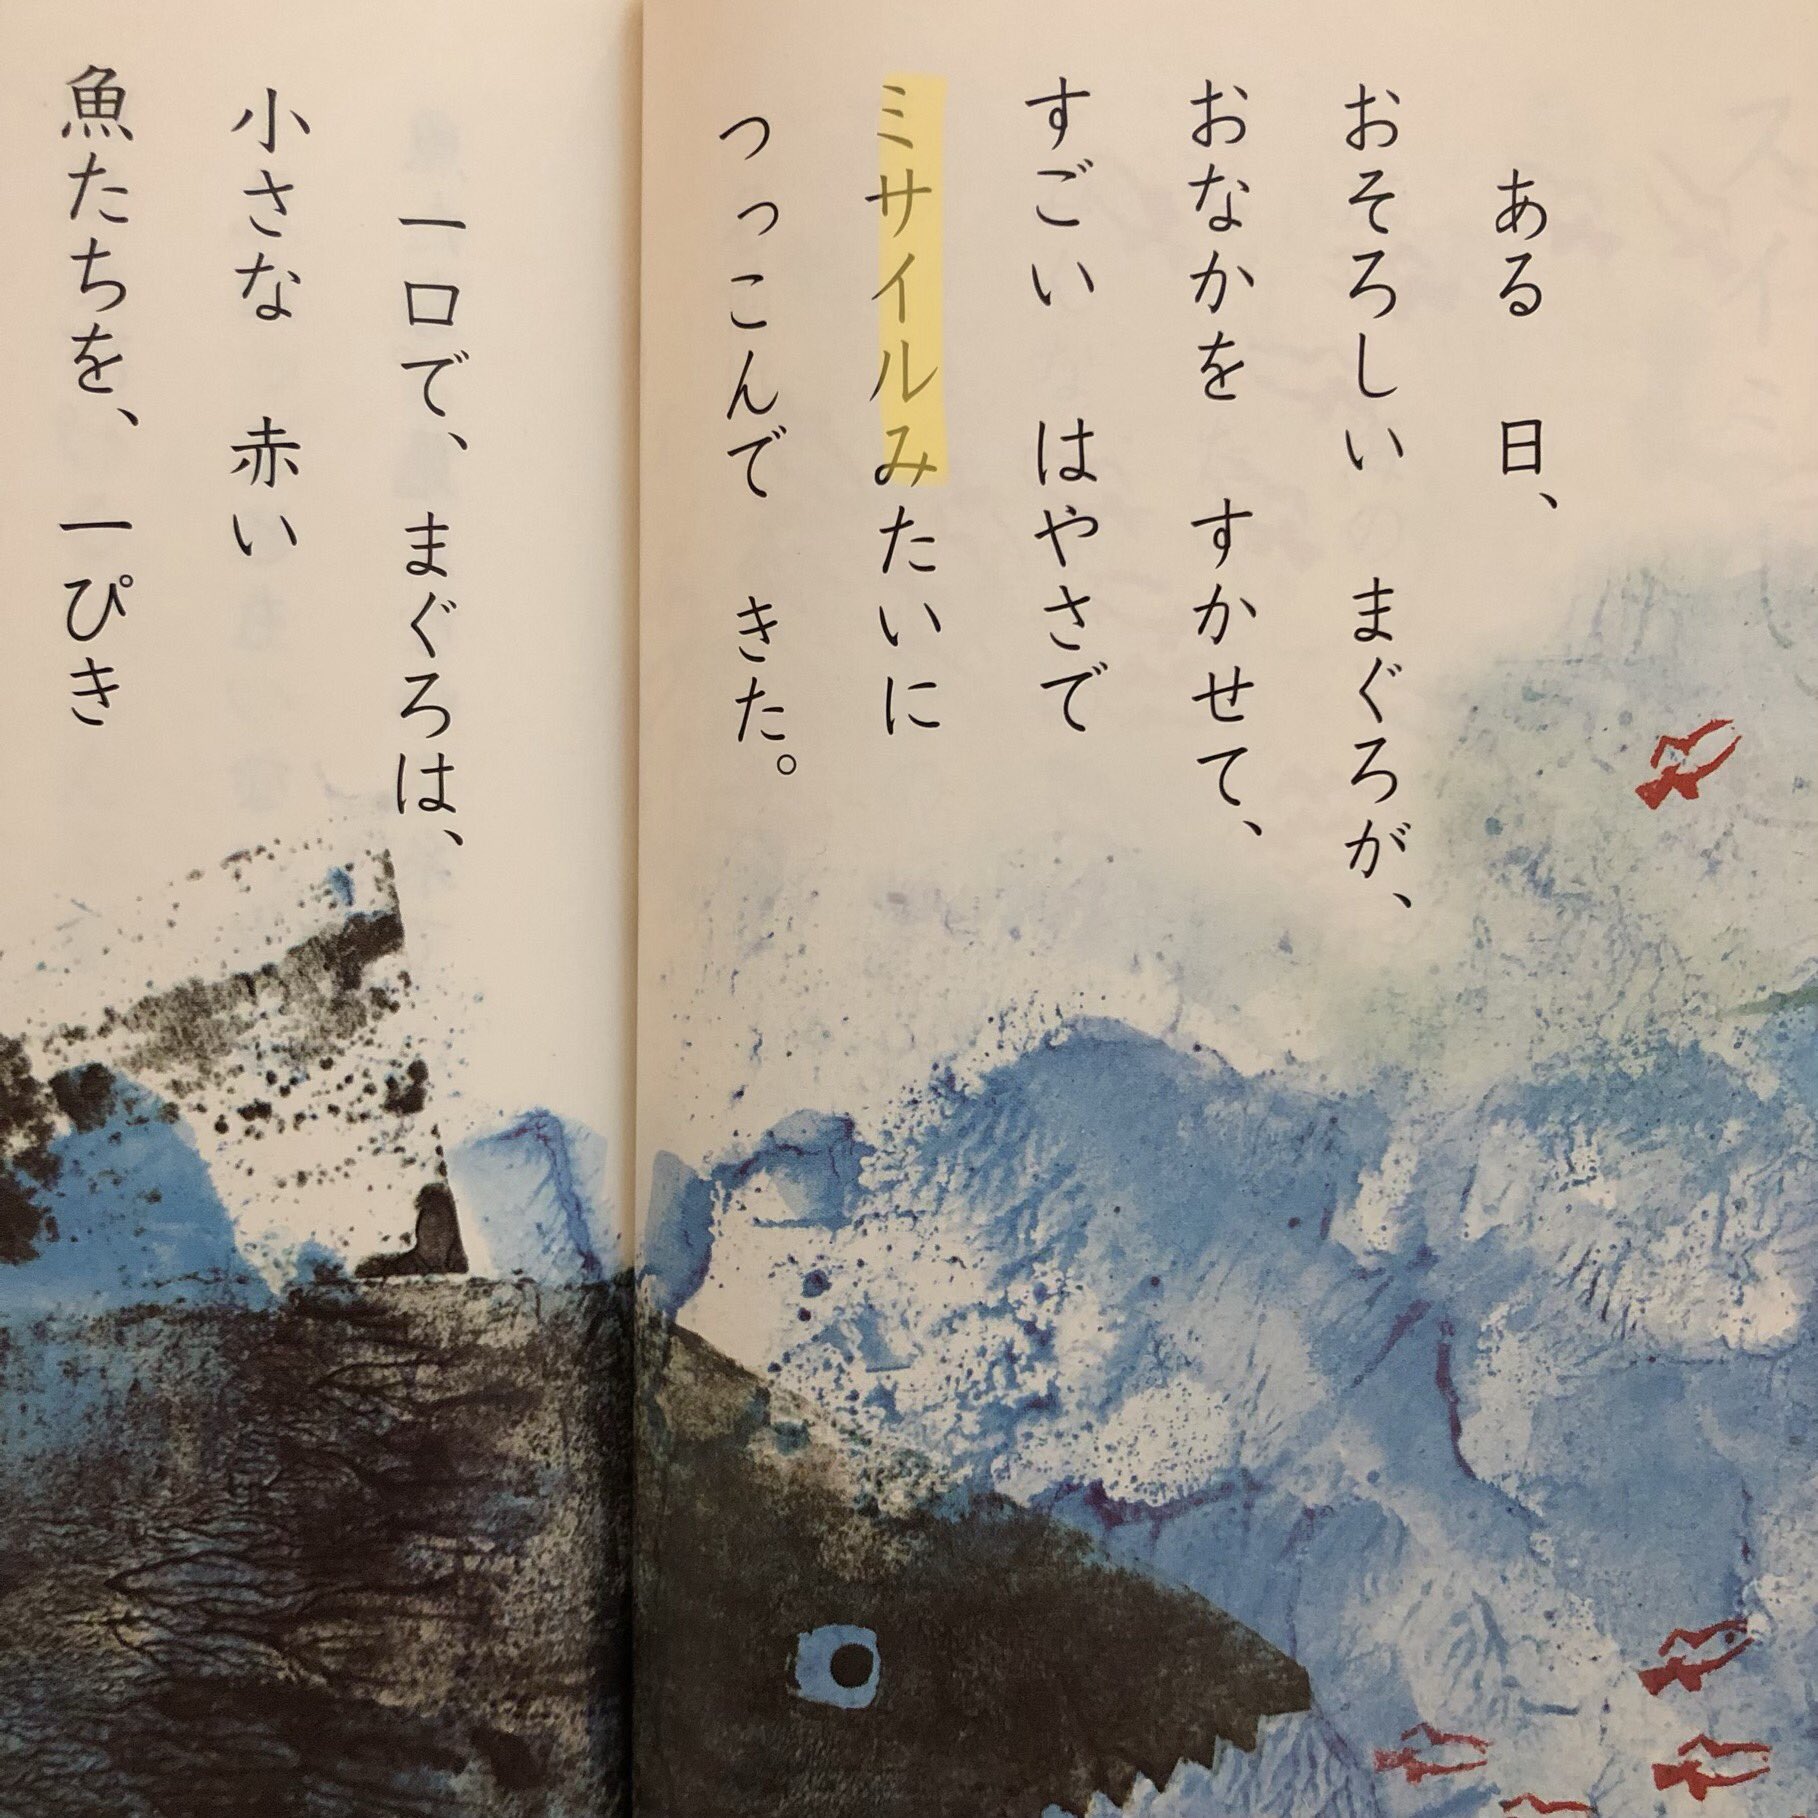 ある　日、
おそろしい　まぐろが、
おなかを　すかせて、
すごい　はやさで
ミサイルみたいに
つっこんで　きた。
一口で、まぐろは、
小さな　赤い
魚たちを、一ぴき